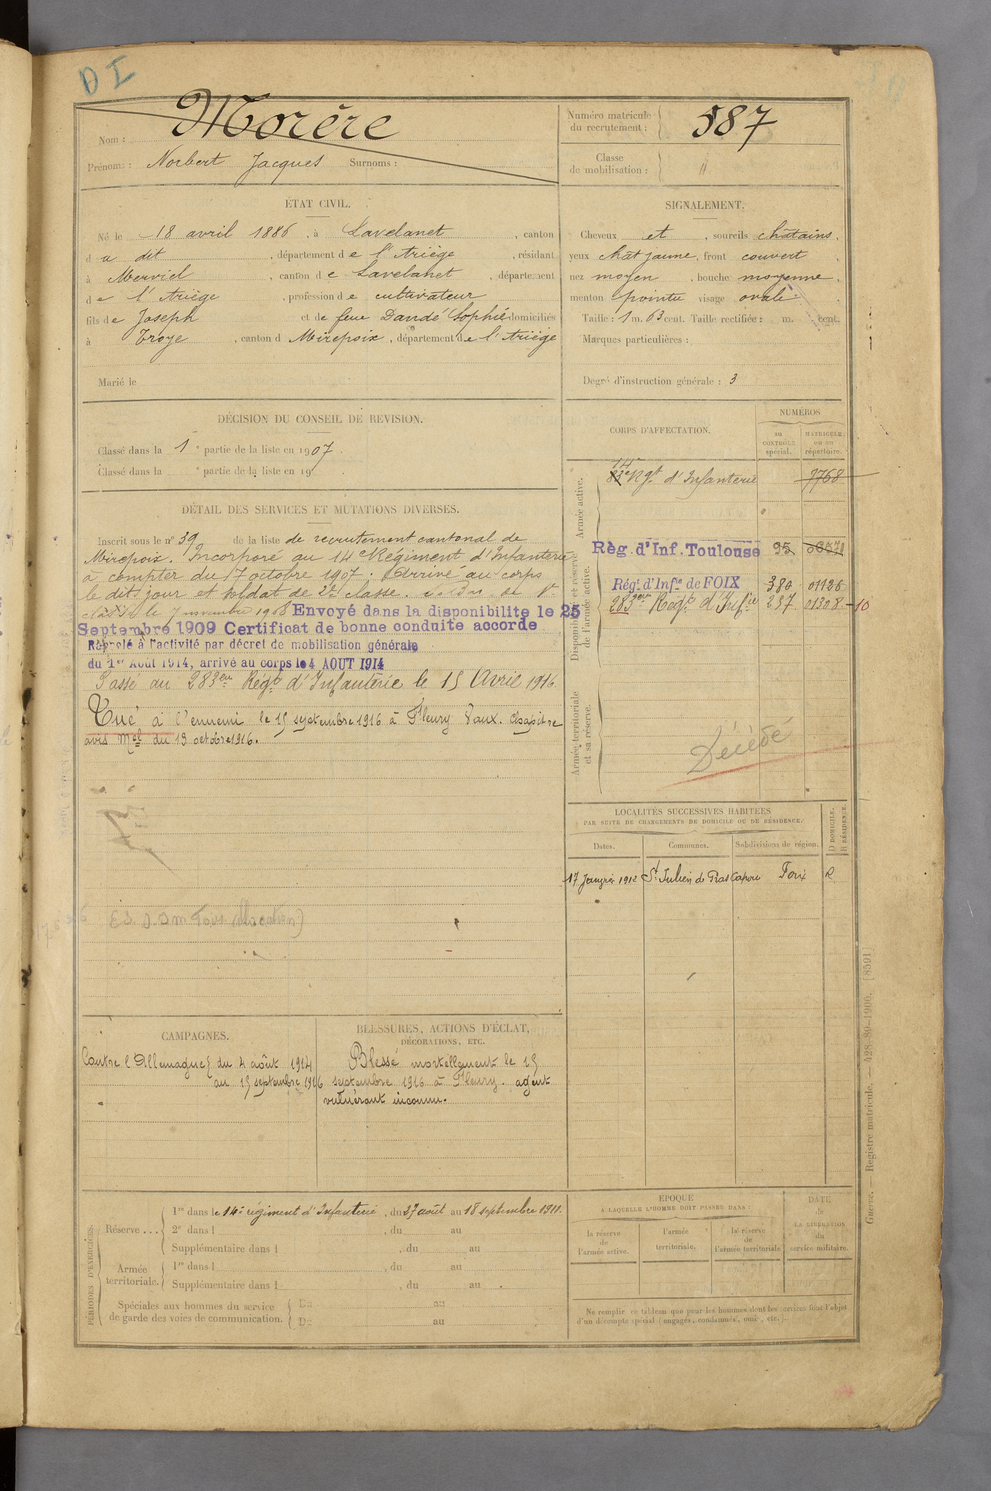 D I
Nom : Morère
Prénoms : Norbert Jacques Surnoms :
Numéro matricule du recrutement : 587
Classe de mobilisation :
ÉTAT CIVIL.
Né le 18 avril 1886, à Lavelanet, canton
du dit, département de l'Ariège, résidant
à Merviel, canton de Lavelanet, département
de l'Ariège, profession de cultivateur
fils de Joseph et de feue Dandé Sophie domiciliés
à Troye, canton d Mirepoix, département de l'Ariège
Marié le
SIGNALEMENT.
Cheveux et, sourcils chatains,
yeux chat jaune, front couvert
nez moyen, bouche moyenne
menton pointu visage ovale
Taille : 1 m. 63 cent. Taille rectifiée : m. cent.
Marques particulières :
Degré d'instruction générale : 3
DÉCISION DU CONSEIL DE REVISION.
Classé dans la 1e partie de la liste en 1907.
Classé dans la e partie de la liste en 19
DÉTAIL DES SERVICES ET MUTATIONS DIVERSES.
Inscrit sous le n° 39 de la liste de recrutement cantonal de
Mirepoix. Incorporé au 14e Régiment d'Infanterie
à compter du 7 octobre 1907; Arrivé au corps
le dit jour et soldat de 2e classe.
le 7 novembre 1908 Envoyé dans la disponibilité le 25
Septembre 1909 Certificat de bonne conduite accordé
Rappelé à l'activité par décret de mobilisation générale
du 1er Août 1914, arrivé au corps le 4 AOUT 1914
Passé au 283ème Régt d'Infanterie le 15 Avril 1916.
Tué à l'ennemi le 15 septembre 1916 à Fleury Vaux. Chapitre
avis Mel du 19 octobre 1916.
CORPS D'AFFECTATION.
NUMÉROS
au CONTRÔLE spécial.
MATRICULE ou au répertoire.
Armée active.
14e Rgt d'Infanterie 7768
Disponibilité et réserve de l'armée active.
Rég. d'Inf. Toulouse 95
Régt d'Infie de FOIX 380 01126
283ème Régt d'Infie 237 01308-10
Armée territoriale et sa réserve.
Décédé
LOCALITÉS SUCCESSIVES HABITÉES
PAR SUITE DE CHANGEMENTS DE DOMICILE OU DE RÉSIDENCE.
Dates. Communes. Subdivisions de région. D DOMICILE. R RÉSIDENCE.
17 Janvier 1912 St Julien de Gras Capou Foix R
CAMPAGNES.
Contre l'Allemagne du 4 août 1914
au 15 septembre 1916
BLESSURES, ACTIONS D'ÉCLAT,
DÉCORATIONS, ETC.
Blessé mortellement le 15
septembre 1916 à Fleury. agent
vulnérant inconnu.
PÉRIODES D'EXERCICES.
Réserve...
1re dans le 14e régiment d'Infanterie, du 27 août au 18 septembre 1911.
2e dans l, du au
Supplémentaire dans l, du au
Armée territoriale.
1re dans l, du au
Supplémentaire dans l, du au.
Spéciales aux hommes du service de garde des voies de communication.
Du au
Du au
ÉPOQUE
À LAQUELLE L'HOMME DOIT PASSER DANS
la réserve de l'armée active.
l'armée territoriale.
la réserve de l'armée territoriale
DATE de LA LIBÉRATION du service militaire.
Ne remplir ce tableau que pour les hommes dont les services font l'objet
d'un décompte spécial (engagés, condamnés, omis, etc.).
Guerre. — Registre matricule. — 428-89-1906. [8591]